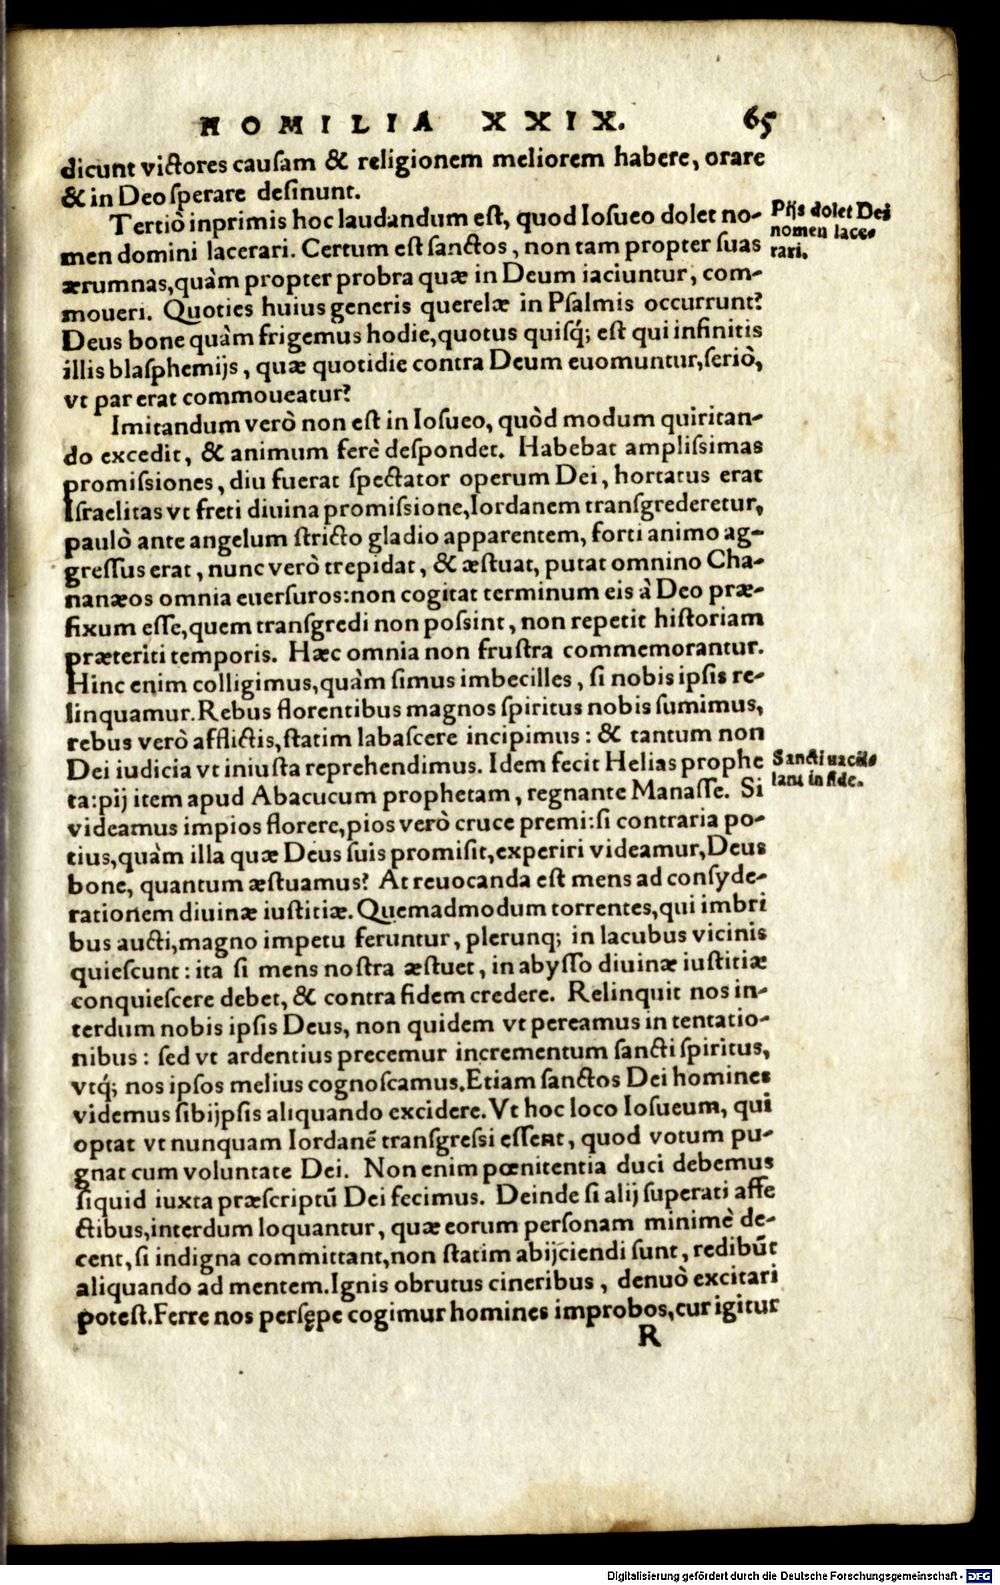 HOMILIA XXIX. 65
dicunt victores cauſam & religionem meliorem habere, orare
& in Deo ſperare deſinunt.
Tertiò inprimis hoc laudandum eſt, quod Ioſueo dolet no-
men domini lacerari. Certum eſt ſanctos, non tam propter ſuas
ærumnas, quàm propter probra quæ in Deum iaciuntur, com-
moueri. Quoties huius generis querelæ in Pſalmis occurrunt?
Deus bone quàm frigemus hodie, quotus quiſq́; eſt qui infinitis
illis blaſphemijs, quæ quotidie contra Deum euomuntur, ſeriò,
vt par erat commoueatur?
Pijs dolet Dei
nomen lace-
rari.
Imitandum verò non eſt in Ioſueo, quòd modum quiritan-
do excedit, & animum ferè deſpondet. Habebat ampliſsimas
promiſsiones, diu fuerat ſpectator operum Dei, hortatus erat
Iſraelitas vt freti diuina promiſsione, Iordanem tranſgrederetur,
paulò ante angelum ſtricto gladio apparentem, forti animo ag-
greſſus erat, nunc verò trepidat, & æſtuat, putat omnino Cha-
nanæos omnia euerſuros: non cogitat terminum eis à Deo præ-
fixum eſſe, quem tranſgredi non poſsint, non repetit hiſtoriam
præteriti temporis. Hæc omnia non fruſtra commemorantur.
Hinc enim colligimus, quàm ſimus imbecilles, ſi nobis ipſis re-
linquamur. Rebus florentibus magnos ſpiritus nobis ſumimus,
rebus verò afflictis, ſtatim labaſcere incipimus: & tantum non
Dei iudicia vt iniuſta reprehendimus. Idem fecit Helias prophe
ta: pij item apud Abacucum prophetam, regnante Manaſſe. Si
videamus impios florere, pios verò cruce premi: ſi contraria po-
tius, quàm illa quæ Deus ſuis promiſit, experiri videamur, Deus
bone, quantum æſtuamus? At reuocanda eſt mens ad conſyde-
rationem diuinæ iuſtitiæ. Quemadmodum torrentes, qui imbri
bus aucti, magno impetu feruntur, plerunq; in lacubus vicinis
quieſcunt: ita ſi mens noſtra æſtuet, in abyſſo diuinæ iuſtitiæ
conquieſcere debet, & contra fidem credere. Relinquit nos in-
terdum nobis ipſis Deus, non quidem vt pereamus in tentatio-
nibus: ſed vt ardentius precemur incrementum ſancti ſpiritus,
vtq́; nos ipſos melius cognoſcamus. Etiam ſanctos Dei homines
videmus ſibijpſis aliquando excidere. Vt hoc loco Ioſueum, qui
optat vt nunquam Iordanē tranſgreſsi eſſent, quod votum pu-
gnat cum voluntate Dei. Non enim pœnitentia duci debemus
ſiquid iuxta præſcriptū Dei fecimus. Deinde ſi alij ſuperati affe
ctibus, interdum loquantur, quæ eorum perſonam minimè de-
cent, ſi indigna committant, non ſtatim abijciendi ſunt, redibūt
aliquando ad mentem. Ignis obrutus cineribus, denuò excitari
poteſt. Ferre nos perſępe cogimur homines improbos, cur igitur
Sancti uacil-
lant in fide.
R
Digitalisierung gefördert durch die Deutsche Forschungsgemeinschaft - DFG